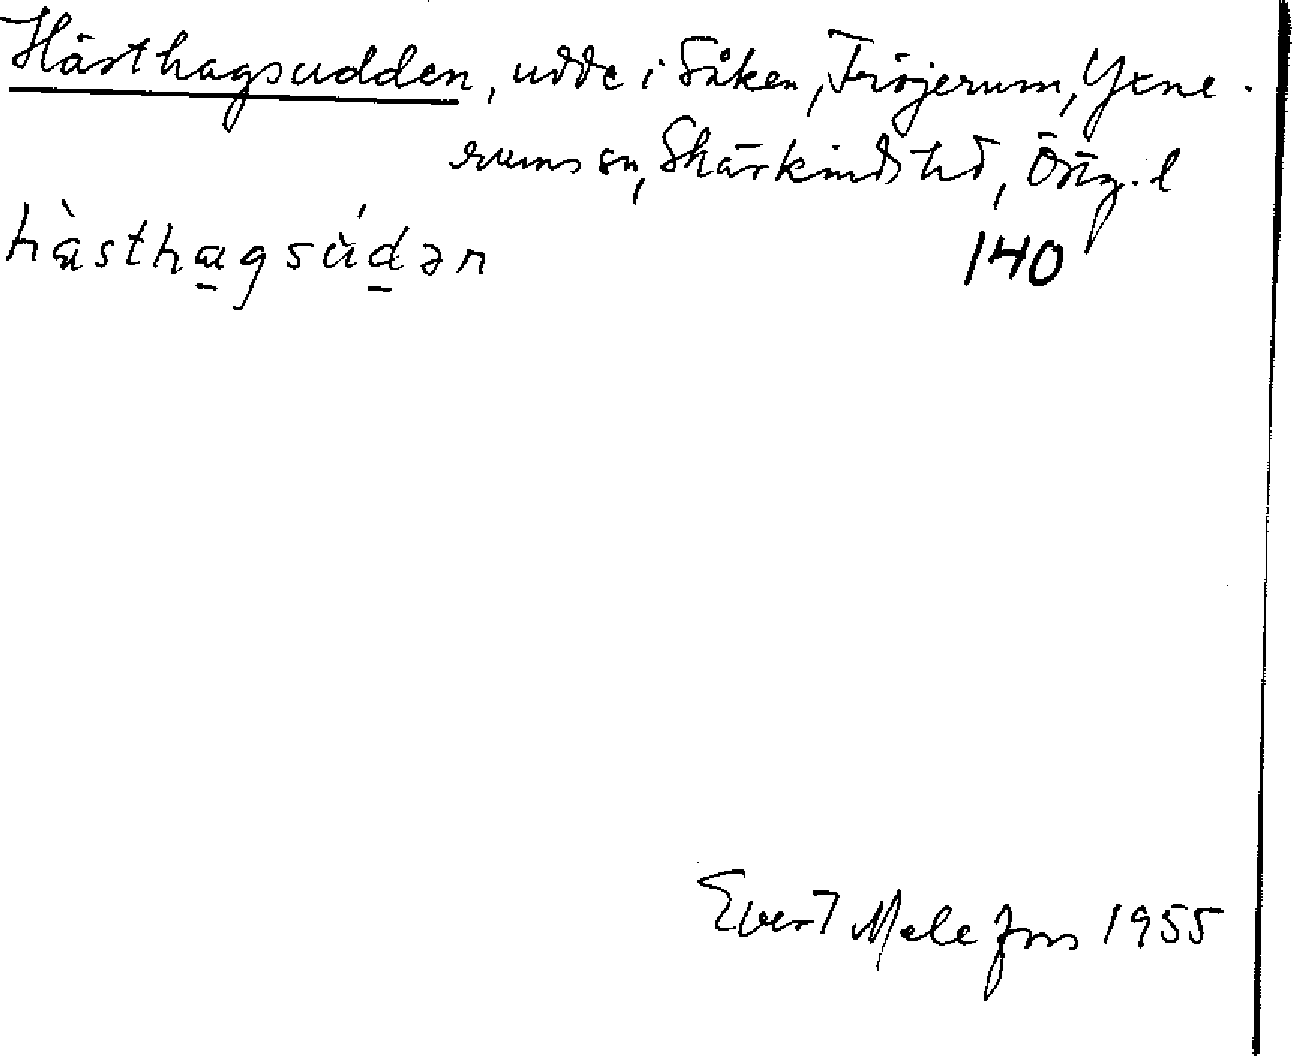 Hästhagsudden, udde i Såken, Fröjerum, Yxne-
rums sn, Skärkinds hd, Östg. l
hàsthagsu̇́dən 140
Evert Melefors 1955